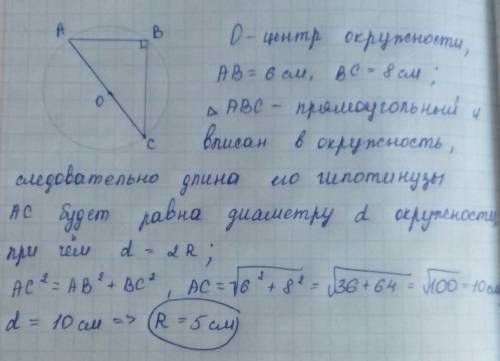 A B
O
C
О - центр окружности,
AB = 6 см, BC = 8 см;
△ ABC - прямоугольный и
вписан в окружность,
следовательно длина его гипотинузы
AC будет равна диаметру d окружности,
при чём d = 2R;
AC² = AB² + BC², AC = √6² + 8² = √36 + 64 = √100 = 10 см
d = 10 см => R = 5 см